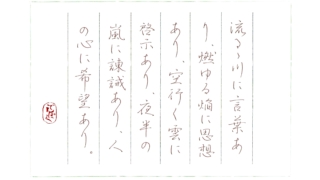 流るゝ川に言葉あ
り、燃ゆる焔に思想
あり、空行く雲に
啓示あり、夜半の
嵐に諌誡あり。人
の心に希望あり。